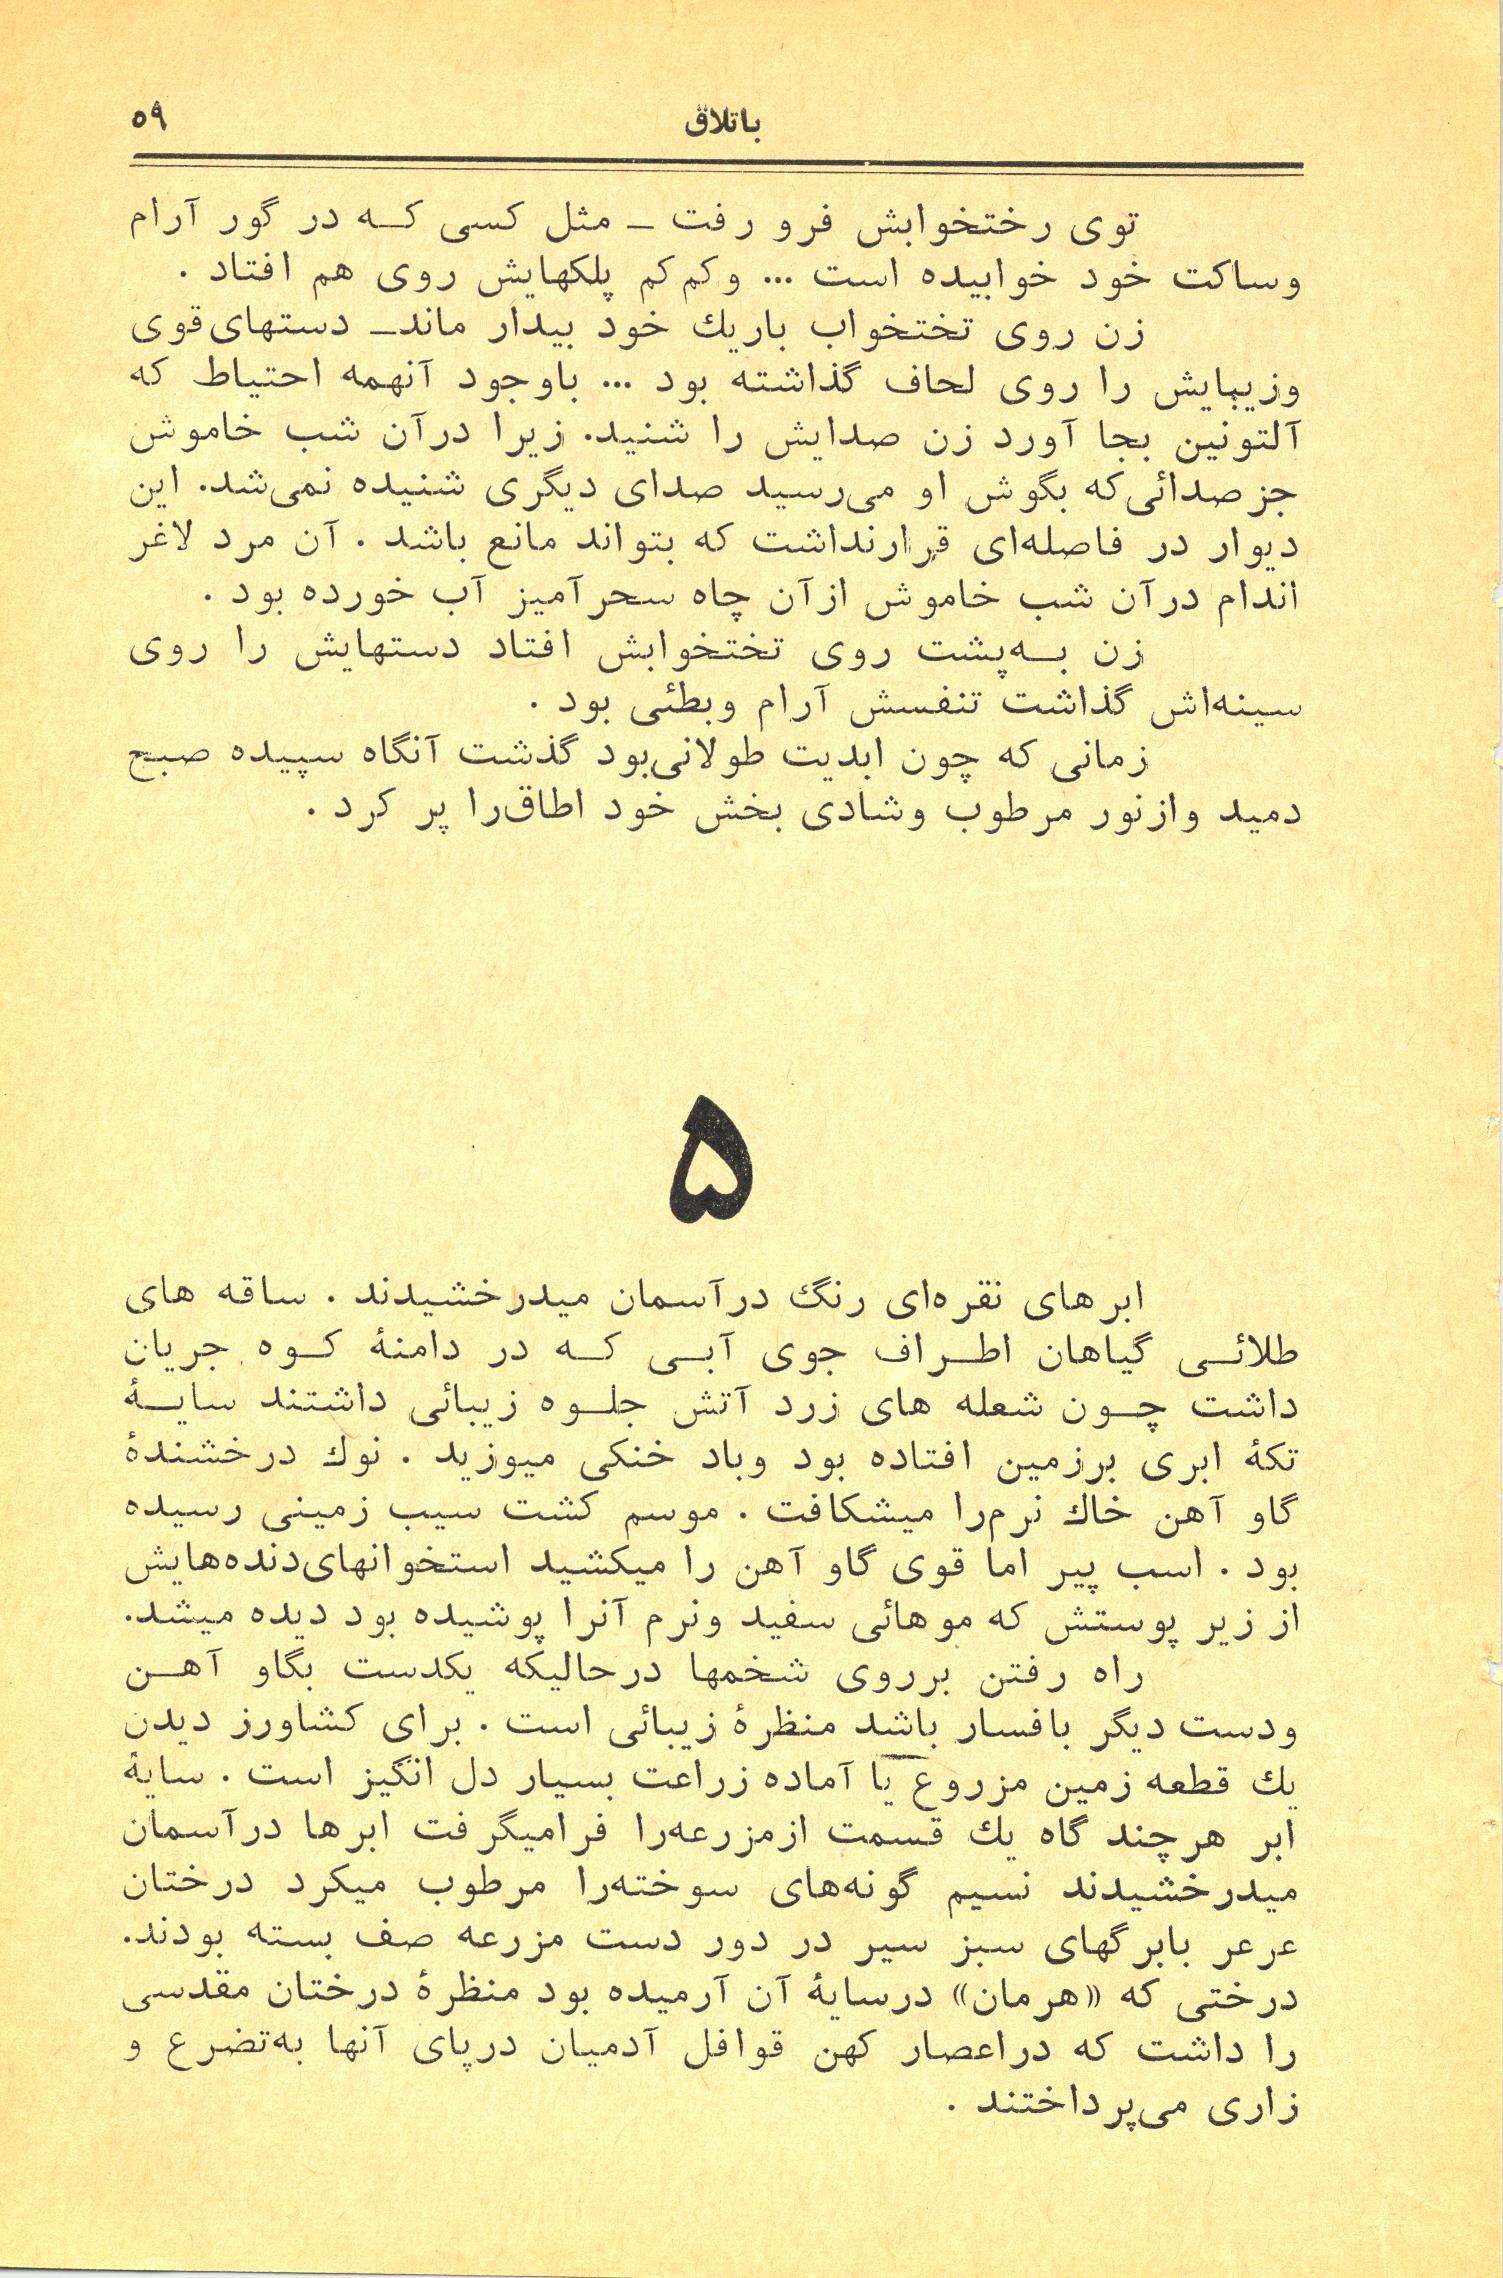 باتلاق
۵۹
توی رختخوابش فرو رفت ـ مثل کسی کـه در گور آرام
وساکت خود خوابیده است ... وکم‌کم پلکهایش روی هم افتاد .
زن روی تختخواب باریك خود بیدار ماندـ دستهای قوی
وزیبایش را روی لحاف گذاشته بود ... باوجود آنهمه احتیاط که
آلتونین بجا آورد زن صدایش را شنید. زیرا درآن شب خاموش
جز صدائی‌که بگوش او می‌رسید صدای دیگری شنیده نمی‌شد. این
دیوار در فاصله‌ای قرارنداشت که بتواند مانع باشد . آن مرد لاغر
اندام درآن شب خاموش ازآن چاه سحرآمیز آب خورده بود .
زن بـه‌پشت روی تختخوابش افتاد دستهایش را روی
سینه‌اش گذاشت تنفسش آرام وبطئی بود .
زمانی که چون ابدیت طولانی‌بود گذشت آنگاه سپیده صبح
دمید وازنور مرطوب وشادی بخش خود اطاق‌را پر کرد .
۵
ابرهای نقره‌ای رنگ درآسمان میدرخشیدند . ساقه های
طلائـی گیاهان اطـراف جوی آبـی کـه در دامنهٔ کـوه جریان
داشت چـون شعله های زرد آتش جلـوه زیبائی داشتند سایـهٔ
تکهٔ ابری برزمین افتاده بود وباد خنکی میوزید . نوك درخشندهٔ
گاو آهن خاك نرم‌را میشکافت . موسم کشت سیب زمینی رسیده
بود . اسب پیر اما قوی گاو آهن را میکشید استخوانهای‌دنده‌هایش
از زیر پوستش که موهائی سفید ونرم آنرا پوشیده بود دیده میشد.
راه رفتن برروی شخمها درحالیکه یکدست بگاو آهـن
ودست دیگر بافسار باشد منظرهٔ زیبائی است . برای کشاورز دیدن
یك قطعه زمین مزروع یا آماده زراعت بسیار دل انگیز است . سایهٔ
ابر هرچند گاه یك قسمت ازمزرعه‌را فرامیگرفت ابرها درآسمان
میدرخشیدند نسیم گونه‌های سوخته‌را مرطوب میکرد درختان
عرعر بابرگهای سبز سیر در دور دست مزرعه صف بسته بودند.
درختی که «هرمان» درسایهٔ آن آرمیده بود منظرهٔ درختان مقدسی
را داشت که دراعصار کهن قوافل آدمیان درپای آنها به‌تضرع و
زاری می‌پرداختند .